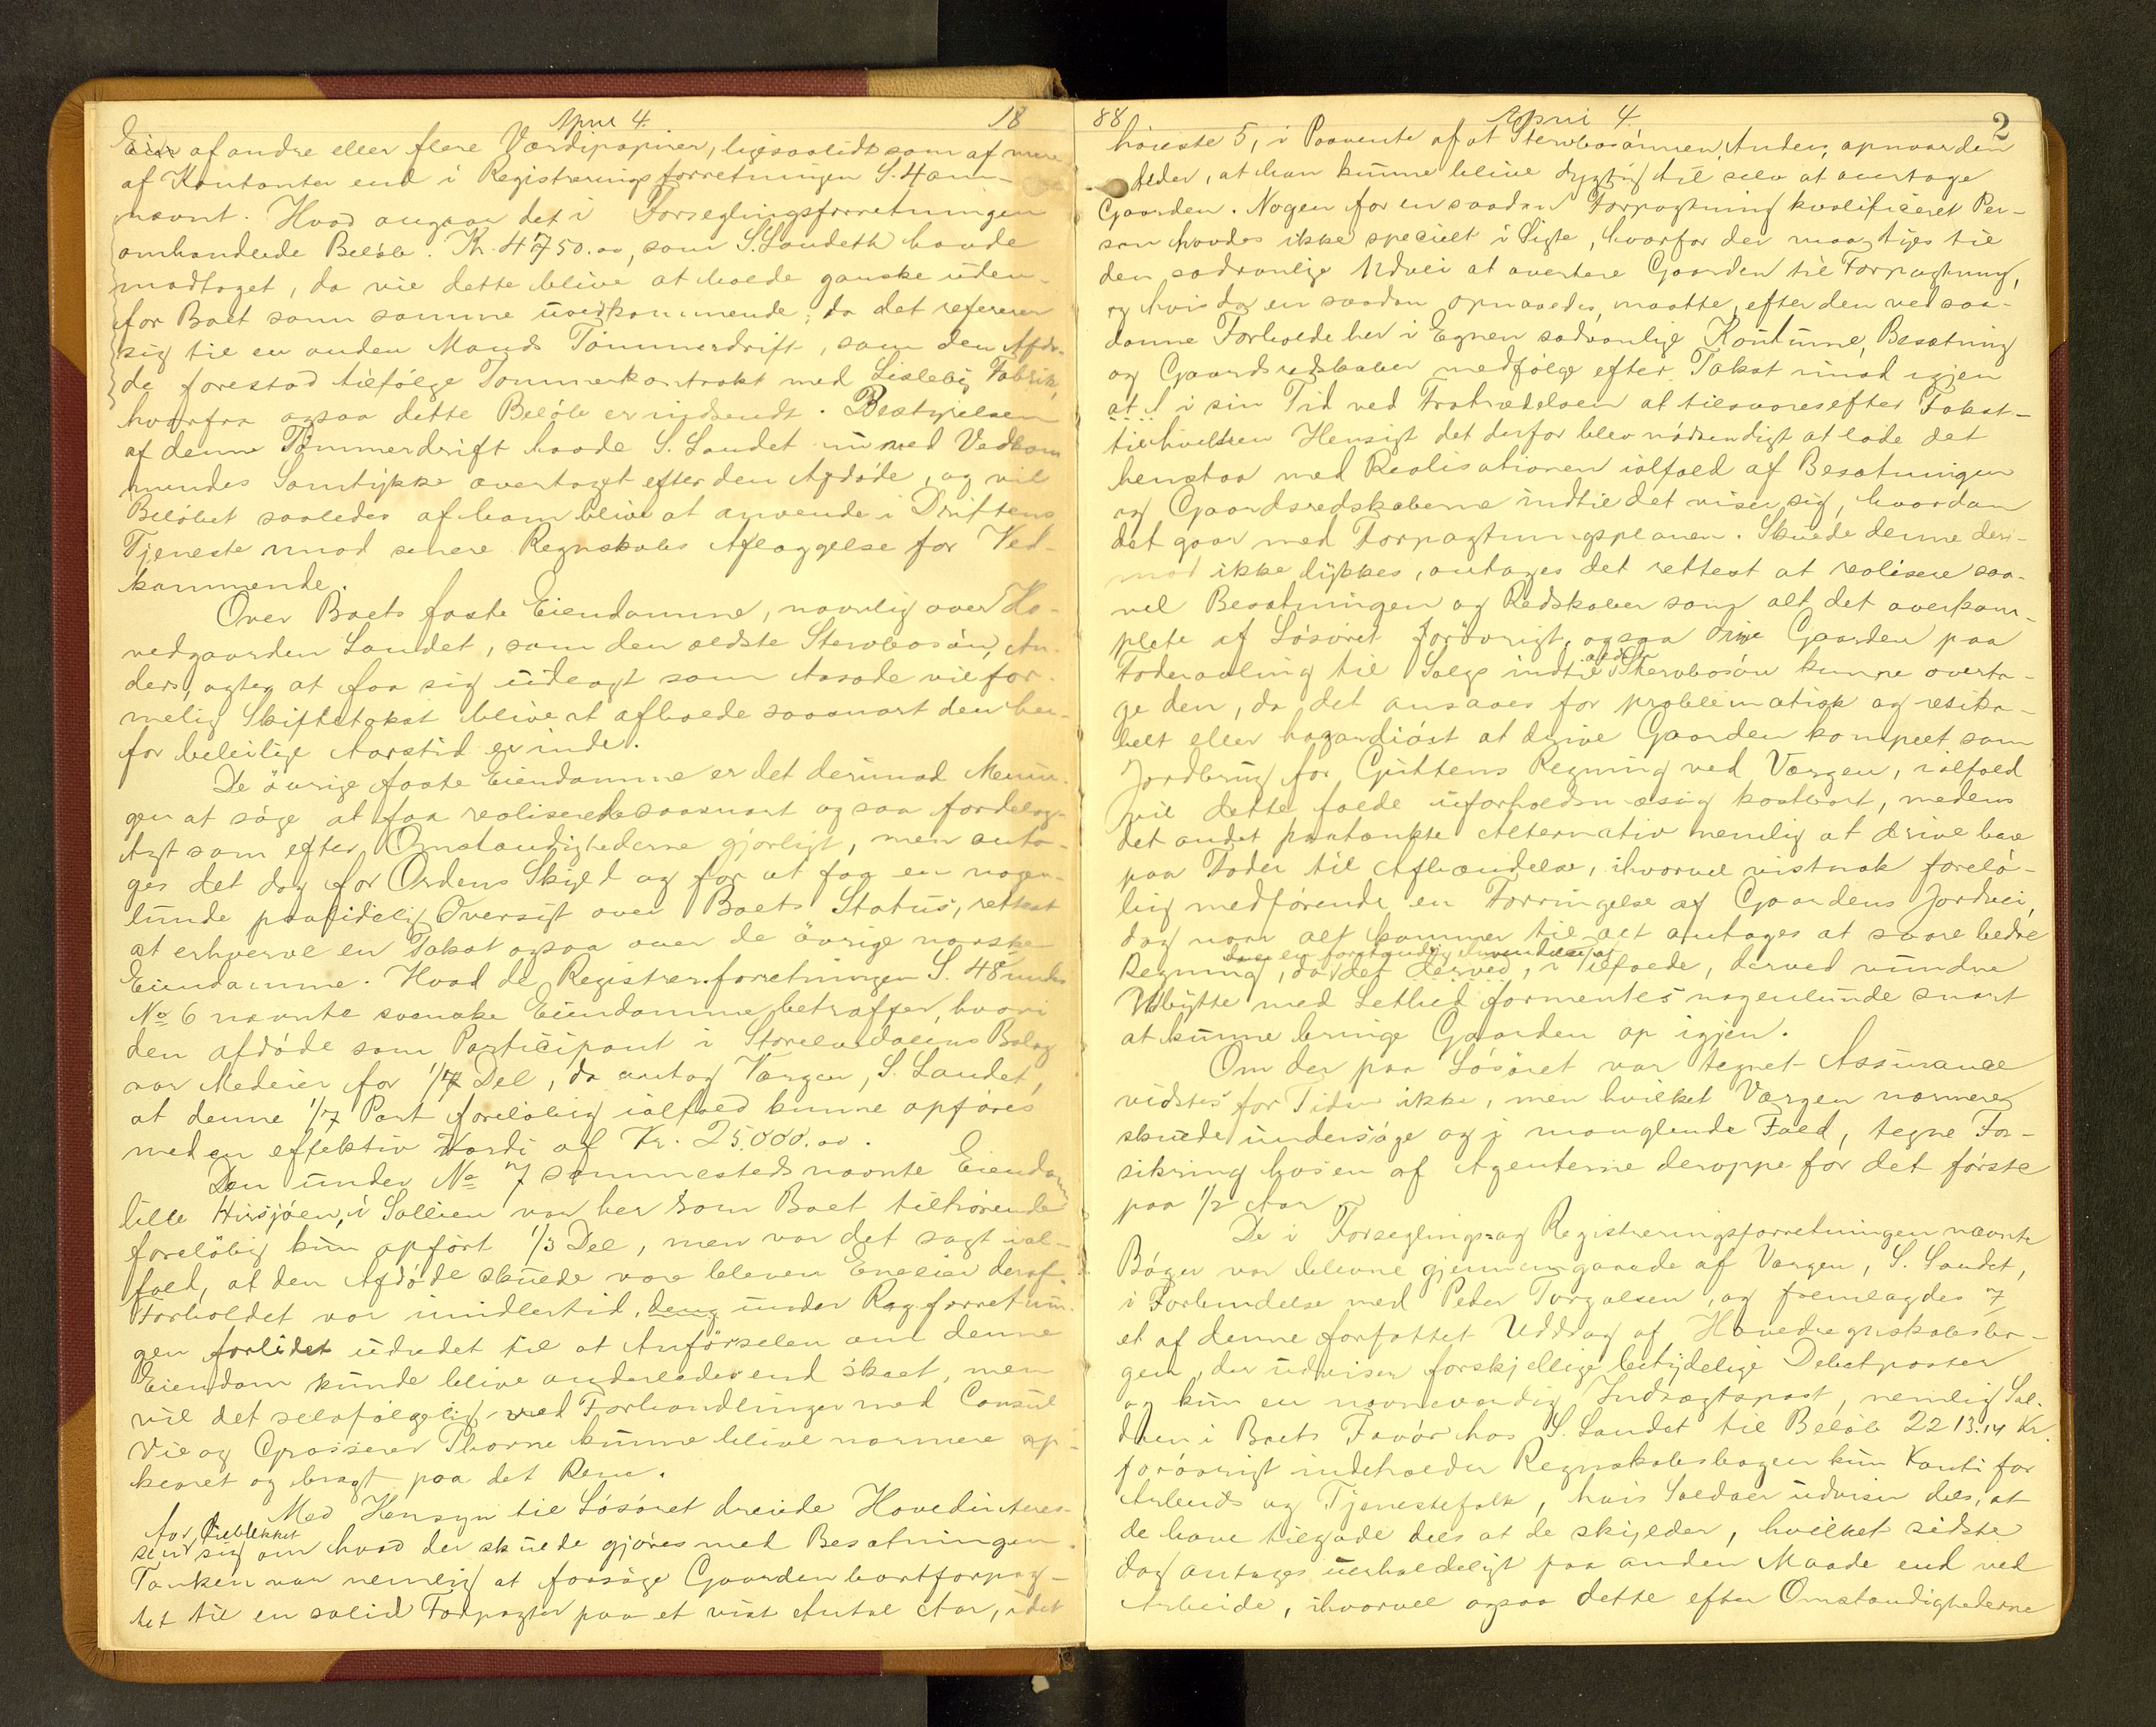 April 4. 18
Eier af andre eller flere Værdipapirer, ligesaalidt som af mere
af Kontanter end i Registreringsforretningen S. 4 om-
nævnt. Hvad angaar det i Forseglingsforretningen
omhandlede Beløb: Kr. 4750.00, som S. Landeth havde
modtaget, da vil dette blive at holde ganske uden-
for Boet som samme uvedkommende, da det refererer
sig til en anden Mands Tømmerdrift, som den Afdø-
de forestod tilfølge Tømmerkontrakt med Lisleby Fabrik,
hvorfra ogsaa dette Beløb er indsendt. Bestyrelsen
af denne Tømmerdrift havde S. Landet nu med Vedkom
mendes Samtykke overtaget efter den Afdøde, og vil
Beløbet saaledes af ham blive at anvende i Driftens
Tjeneste mod senere Regnskabs Aflæggelse for Ved-
kommende.
Over Boets faste Eiendomme, navnlig over Ho-
vedgaarden Landet, som den ældste Stervbosøn, An-
ders, agter at faa sig udlagt som Aasæde vil for-
melig Skiftetakst blive at afholde saasnart den her-
for beleilige Aarstid er inde.
De øvrige faste Eiendomme er det derimod Menin-
gen at søge at faa realiserede saasnart og saa fordelag-
tigt som efter Omstændighederne gjørligt, men anta-
ges det dog for Ordens Skyld og for at faa en nogen-
lunde paalidelig Oversigt over Boets Status, rettest
at erhverve en Takst ogsaa over de øvrige norske
Eiendomme. Hvad de Registrer.forretningen S. 48 under
No 6 nævnte svenske Eiendomme betræffer, hvori
den afdøde som Participant i Storelvdalens Bolag
var Medeier for 1/7 Del, da antog Værgen, S. Landet,
at denne 1/7 Part foreløbig ialfald kunne opføres
med en effektiv Værdi af Kr. 25.000.00.
Den under No 7 sammesteds nævnte Eiendom
lille Hirsjøen, i Sollien var her som Boet tilhørende
foreløbig kun opført 1/3 Del, men var det sagt ial-
fald, at den Afdøde skulde være bleven Eneeier deraf.
Forholdet var imidlertid, deng under Reg.forretnin-
gen forlidet udredet til at Anførselen om denne
Eiendom kunde blive anderledes end skeet, men
vil det selvfølgelig ved Forhandlinger med Consul
Vie og Grosserer Thorne kunne blive nærmere op-
klaret og bragt paa det Rene.
Med Hensyn til Løsøret dreiede Hovedinteres-
for Øieblikket
sen sig om hvad der skulde gjøres med Besætningen.
Tanken var nemlig at forsøge Gaarden bortforpag-
tet til en solid Forpagter paa et vist Antal Aar, idet
88 April 4 2
høieste 5, i Paavente af at Stervbosønnen, Anders, opnaar den
Alder, at han kunne blive dygtig til selv at overtage
Gaarden. Nogen for en saadan Forpagtning kvalificeret Per-
son havdes ikke specielt i Sigte, hvorfor der maa tyes til
den sædvanlige Udvei at avertere Gaarden til Forpagtning,
og hvis da en saadan opnaaedes, maatte, efter den ved saa-
danne Forholde her i Egnen sædvanlige Koutume, Besætning
og Gaardsredskaber medfølge efter Takst imod igjen
at i sin Tid ved Fratrædelsen at tilsvares efter Takst-
til hvilken Hensigt det derfor blev nødvendigt at lade det
henstaa med Realisationen ialfald af Besætningen
og Gaardsredskaberne indtil det viser sig, hvordan
det gaar med Forpagtningsplanen. Skulde denne deri-
mod ikke lykkes, antages det rettest at realisere saa-
vel Besætningen og Redskaber som alt det overkom-
plete af Løsøret forøvrigt, ogsaa drive Gaarden paa
ældste
Foderavling til Salgs indtil Stervbosøn kunne overta-
ge den, da det ansaaes for problematisk og resika-
belt eller hazardiøst at drive Gaarden komplet som
Jordbrug for Guttens Regning ved Værgen, ialfald
vil dette falde uforholdsmæsig kostbart, medens
det andet paatænkte Alternativ nemlig at drive bare
paa Foder til Afhændelse, ihvorvel vistnok forelø-
big medførende en Forringelse af Gaardens Jordvei,
dog naar alt kommer til alt antages at svare bedre
ved en forstandig Anvendelse af
Regning, da det derved, i Tilfælde, derved vundne
Udbytte med Lethed formentes nogenlunde snart
at kunne bringe Gaarden op igjen.
Om der paa Løsøret var tegnet Assurance
vidstes for Tiden ikke, men hvilket Værgen nærmere
skulde undersøge og i manglende Fald, tegne For-
sikring hos en af Agenterne deroppe for det første
paa 1/2 Aar.
De i Forseglings- og Registreringsforretningen nævnte
Bøger var blevne gjennemgaaede af Værgen, S. Landet,
i Forbindelse med Peder Torgalsen, og fremlagdes
et af denne forfattet Uddrag af Hovedregnskabsbo-
gen, der udviser forskjellige betydelige Debetposter
og kun en nævneværdig Indtægtspost, nemlig Sal-
doen i Boets Favør hos S. Landet til Beløb 2213.14 Kr.
forøvrigt indeholder Regnskabsbogen kun Konti for
Arbeids og Tjenestefolk, hvis Saldoer udviser dels, at
de have tilgode dels at de skylder, hvilket sidste
dog antages uerholdeligt paa anden Maade end ved
Arbeide, ihvorvel ogsaa dette efter Omstændighederne